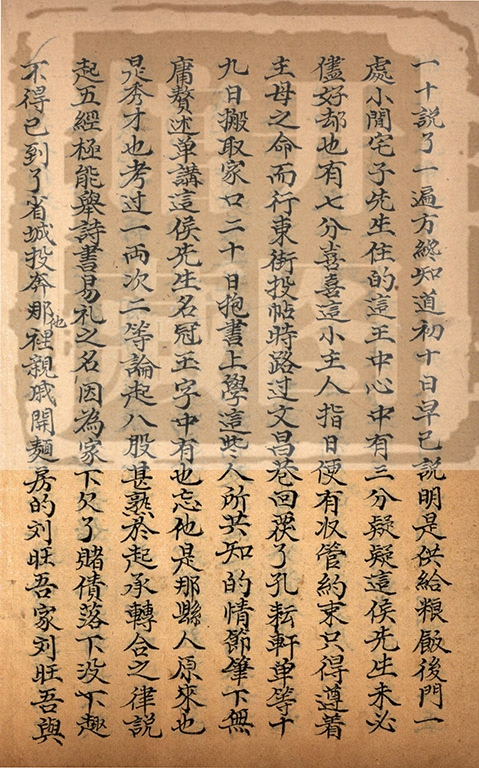 一十說了一遍方纔知道初十日早已說明是供給粮飯後門一
處小閒宅子先生住的這王中心中有三分疑疑這侯先生未必
儘好却也有七分喜喜這小主人指日便有収管約束只得遵着
主母之命而行東街投帖時路过文昌巷回蔟了孔耘軒單等十
九日搬取家口二十日抱書上學這些人所共知的情節筆下無
庸贅述单講這侯先生名冠玉字中有也忘他是那縣人原來也
是秀才也考过一両次二等論起八股甚熟於起承轉合之律説
起五經極能舉詩書易礼之名因為家下欠了賭債落下没下趣
不得已到了省城投奔那他裡親戚開麵房的刘旺吾家刘旺吾與